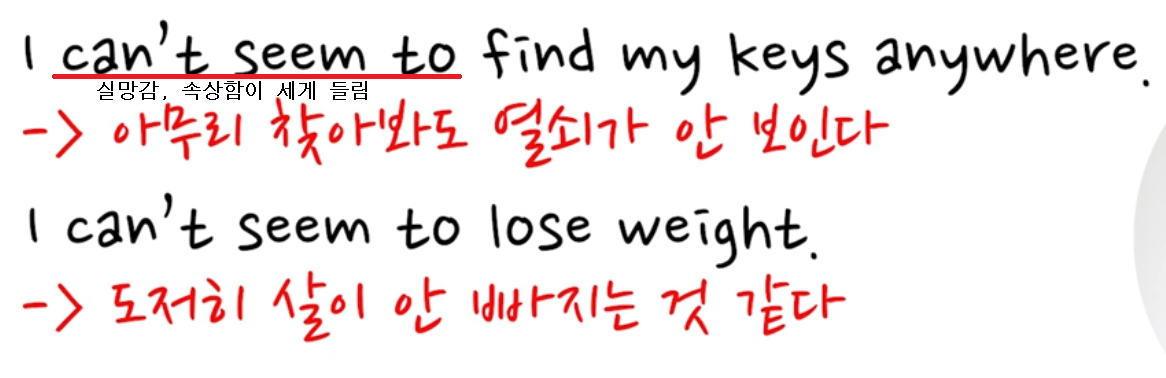 I can't seem to find my keys anywhere.
실망감, 속상함이 세게 들림
-> 아무리 찾아봐도 열쇠가 안 보인다
I can't seem to lose weight.
-> 도저히 살이 안 빠지는 것 같다